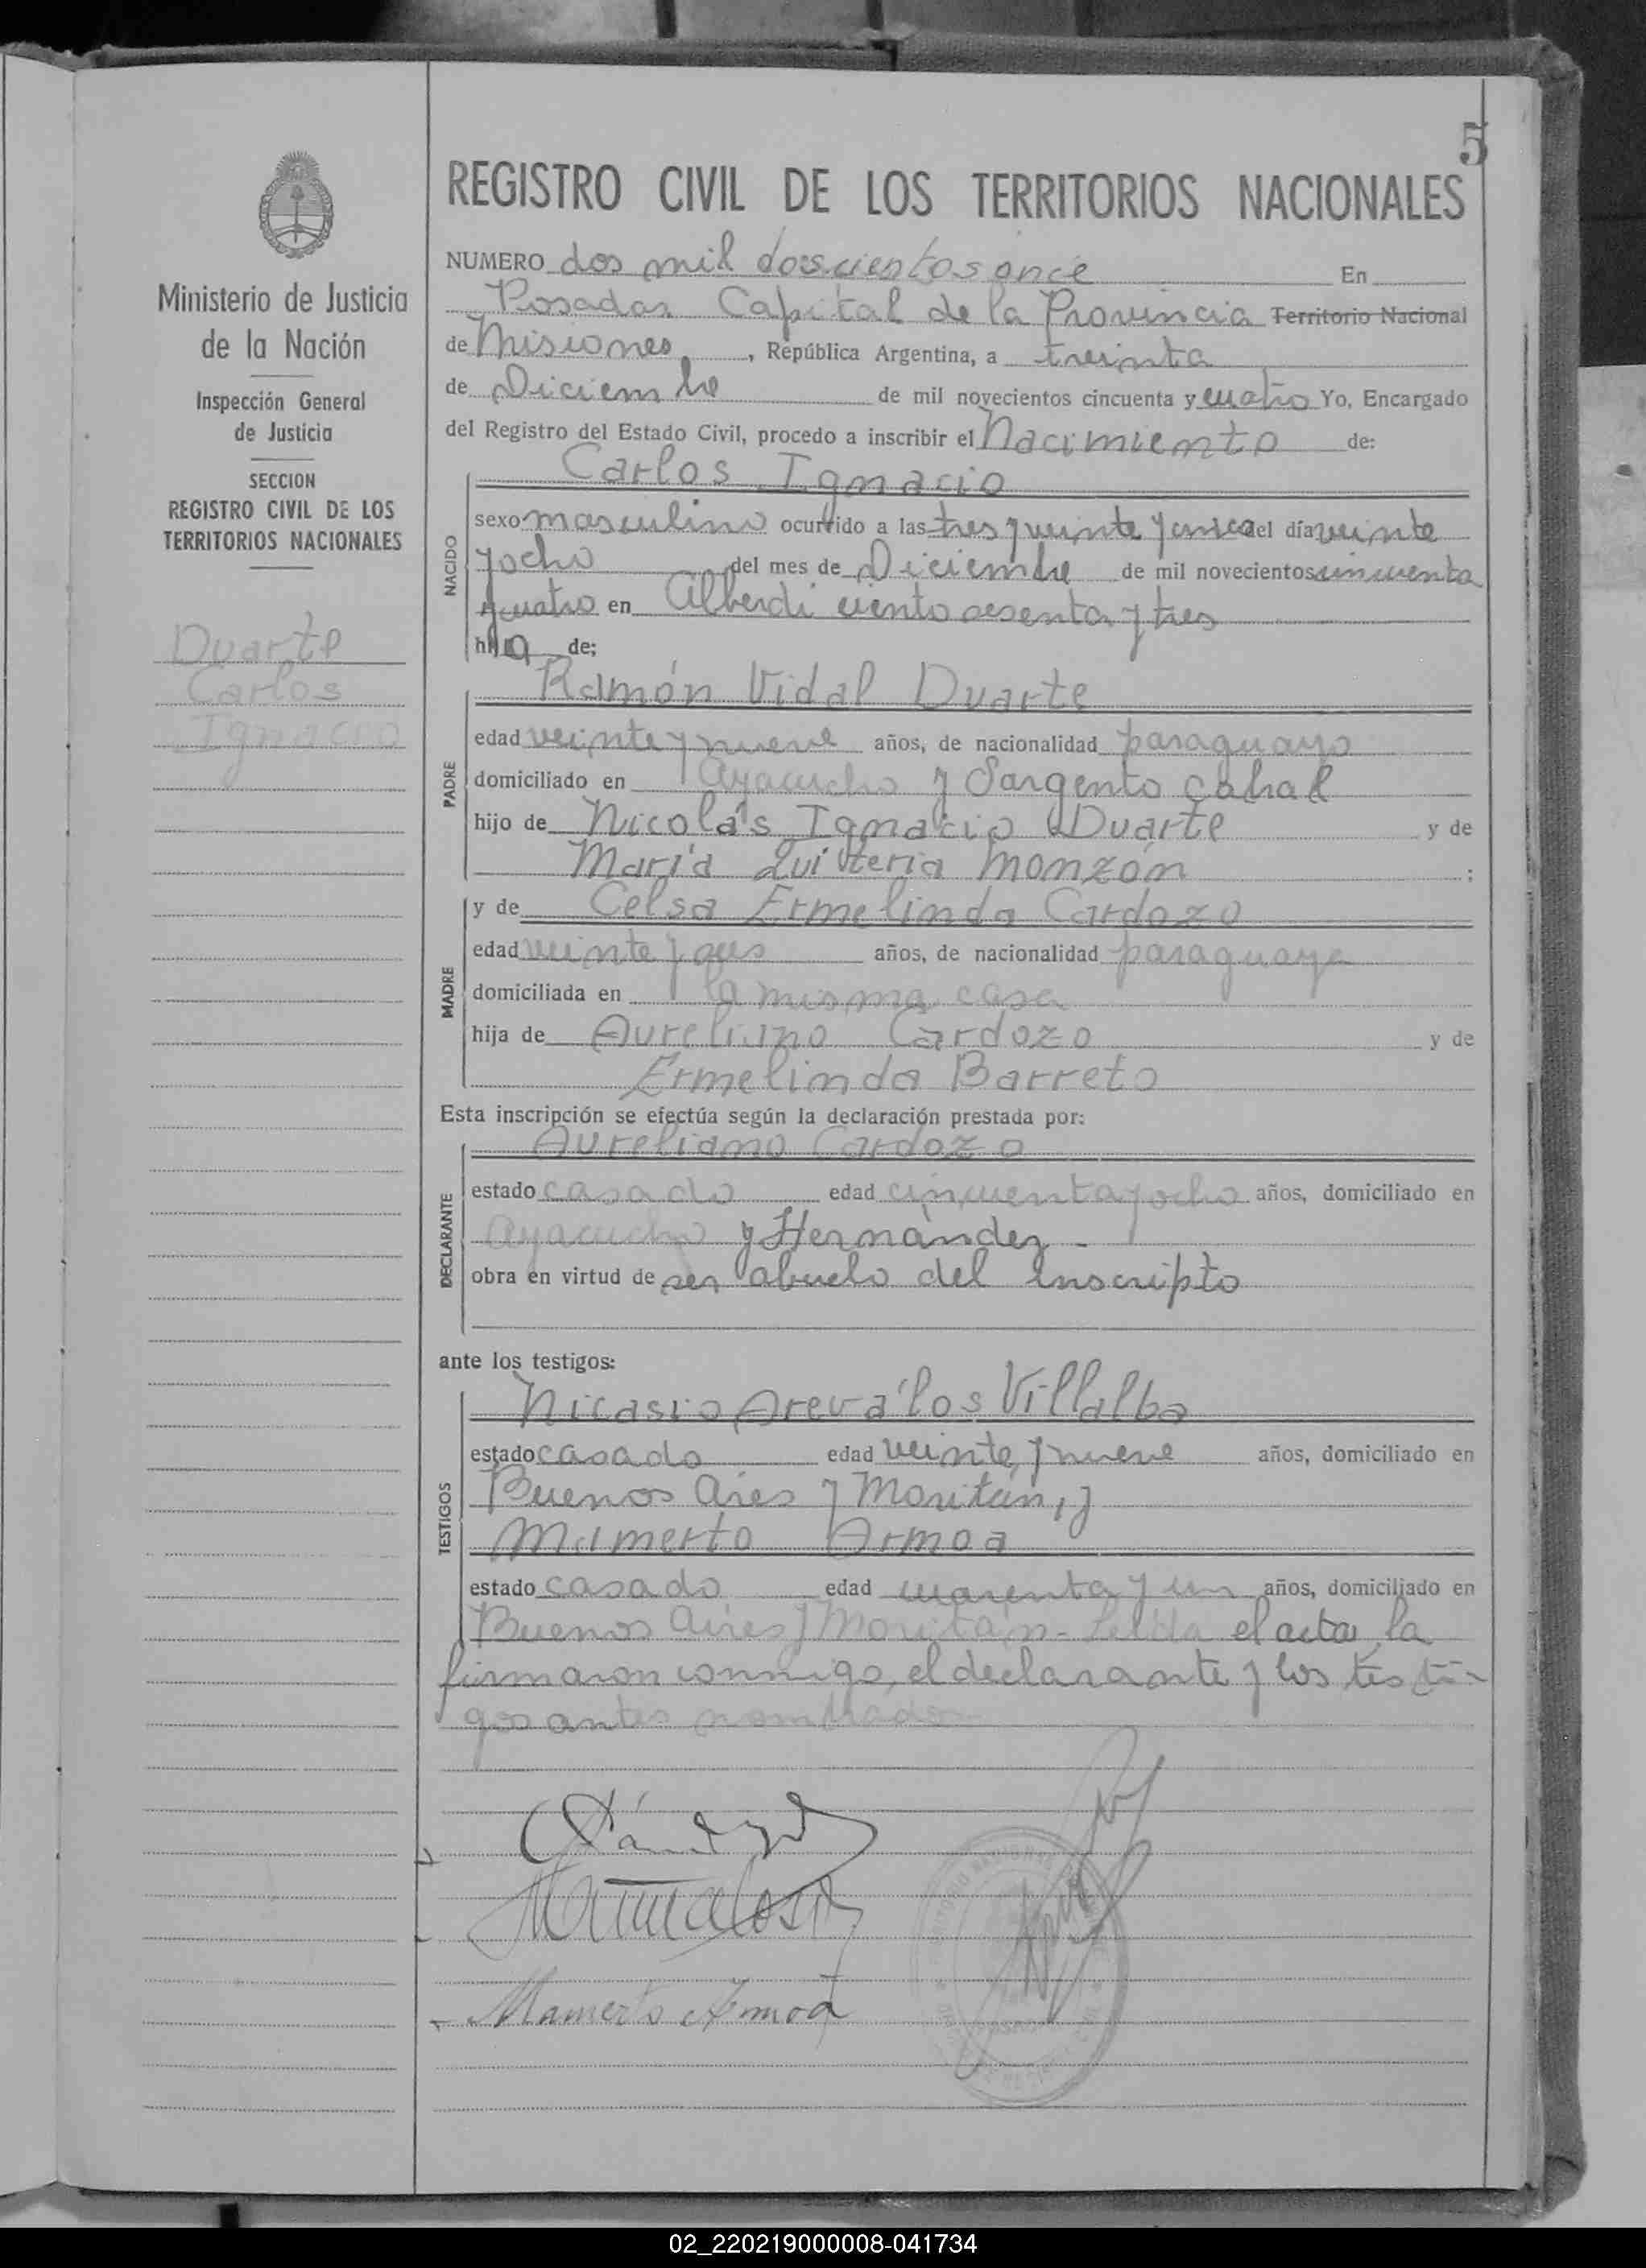 5
REGISTRO CIVIL DE LOS TERRITORIOS NACIONALES
Ministerio de Justicia
de la Nación
Inspección General
de Justicia
SECCION
REGISTRO CIVIL DE LOS
TERRITORIOS NACIONALES
Duarte
Carlos
Ignacio
NUMERO dos mil doscientos once En
Posadas Capital de la Provincia Territorio Nacional
de Misiones, República Argentina, a treinta
de Diciembre de mil novecientos cincuenta y cuatro Yo, Encargado
del Registro del Estado Civil, procedo a inscribir el Nacimiento de:
Carlos Ignacio
NACIDO
sexo masculino ocurrido a las tres y veinte y cinco del día veinte
y ocho del mes de Diciembre de mil novecientos cincuenta
y cuatro en Alberdi ciento sesenta y tres
hijo de;
Ramón Vidal Duarte
PADRE
edad veinte y nueve años, de nacionalidad paraguayo
domiciliado en Ayacucho y Sargento Cabral
hijo de Nicolás Ignacio Duarte y de
María Quiteria Monzón ;
y de Celsa Ermelinda Cardozo
MADRE
edad veinte y años, de nacionalidad paraguaya
domiciliada en la misma casa
hija de Aureliano Cardozo y de
Ermelinda Barreto
Esta inscripción se efectúa según la declaración prestada por:
Aureliano Cardozo
DECLARANTE
estado casado edad cincuenta y ocho años, domiciliado en
Ayacucho y Hernández -
obra en virtud de ser abuelo del inscripto
ante los testigos:
Nicasio Areválos Villalba
TESTIGOS
estado casado edad veinte y nueve años, domiciliado en
Buenos Aires y Moritán, y
Mamerto Armoa
estado casado edad cuarenta y un años, domiciliado en
Buenos Aires y Moritán - Leída el acta la
firmaron conmigo, el declarante y los testi-
gos antes nombrados
Mamerto Armoa
02_220219000008-041734